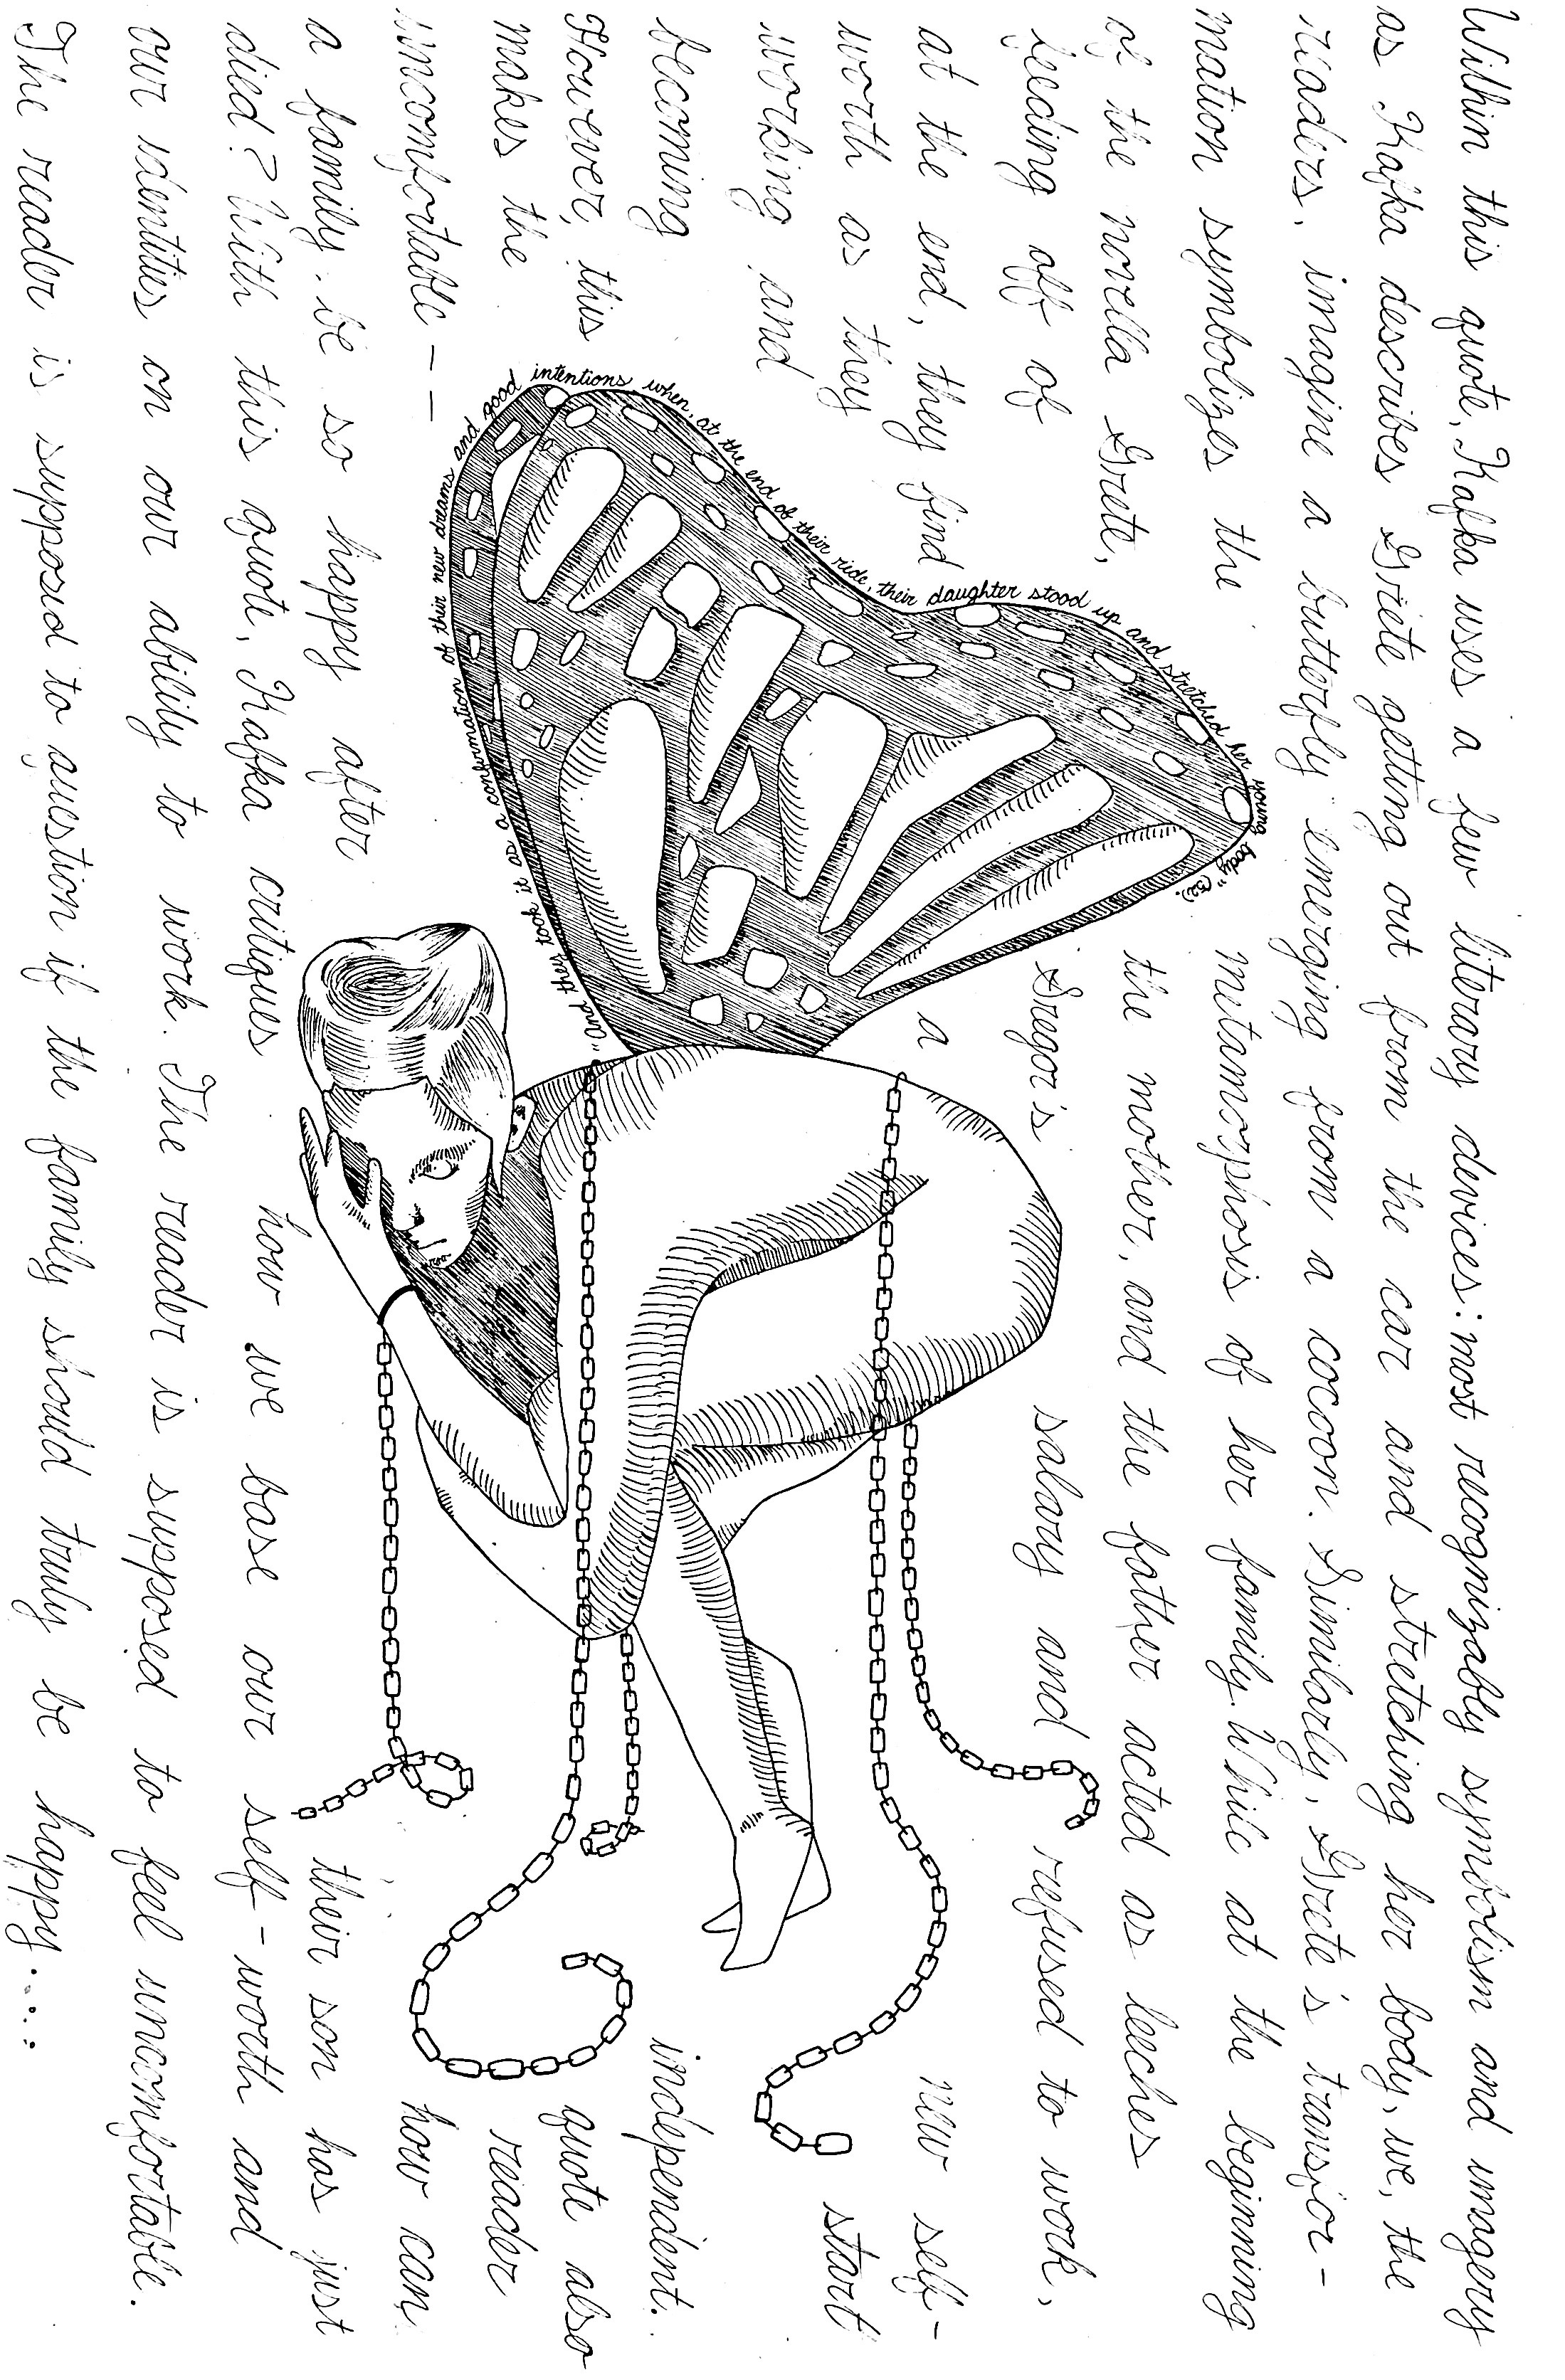 Within this quote, Kafka uses a few literary devices: most recognizably symbolism and imagery
as Kafka describes Grete getting out from the car and stretching her body, we, the
readers, imagine a butterfly emerging from a cocoon. Similarly, Grete's transfor-
mation symbolizes the metamorphosis of her family. While at the beginning
of the novella Grete, the mother, and the father acted as leeches
feeding off of Gregor's salary and refused to work,
at the end, they find a new self-
worth as they start
working and
becoming independent.
However, this quote also
makes the reader
uncomfortable -- how can,
a family be so happy after their son has just
died? With this quote, Kafka critiques how we base our self-worth and
our identities on our ability to work. The reader is supposed to feel uncomfortable.
The reader is supposed to question if the family should truly be happy....
"and they took it as a conformation of their new dreams and good intentions when, at the end of their ride, their daughter stood up and stretched her young body" (52).